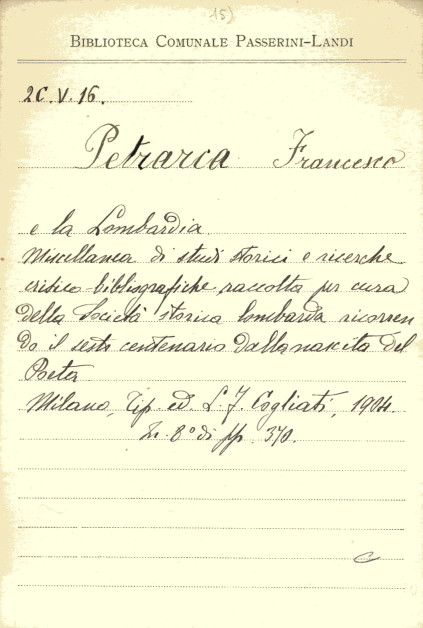 15)
BIBLIOTECA COMUNALE PASSERINI-LANDI
2C.V.16.
Petrarca Francesco
e la Lombardia
Miscellanea di studi storici e ricerche
critico bibliografiche raccolta per cura
della Società storica lombarda ricorren
do il sesto centenario dalla nascita del
Poeta.
Milano, Tip. ed. L. F. Cogliati, 1904.
In 8° di pp. 370.